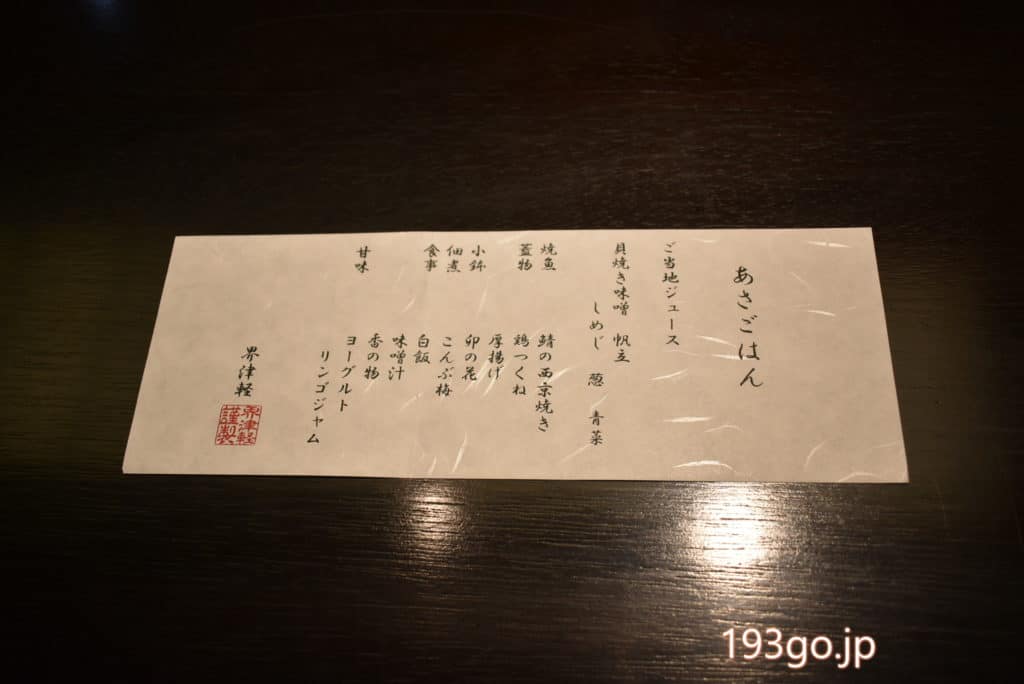 あさごはん
ご当地ジュース
貝焼き味噌 帆立
しめじ 葱 青菜
焼魚 鯖の西京焼き
蓋物 鶏つくね
厚揚げ
小鉢 卯の花
佃煮 こんぶ梅
食事 白飯
味噌汁
香の物
甘味 ヨーグルト
リンゴジャム
界津軽
界津軽
謹製
193go.jp